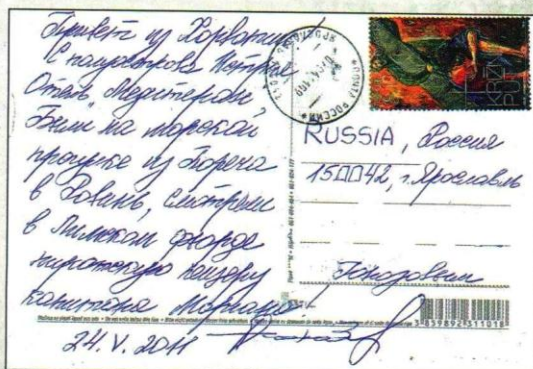 Привет из Хорватии
С полуострова Истрия
Отель "Медитеран"
Были на морской
прогулке из Пореча
в Ровинь, смотрели
в Лимском фьорде
пиратскую пещеру
капитана Моргана
24.V.2011
ПОЧТА РОССИИ
KRIŽNI PUT
RUSSIA, Россия
150042, г. Ярославль
3859892311018